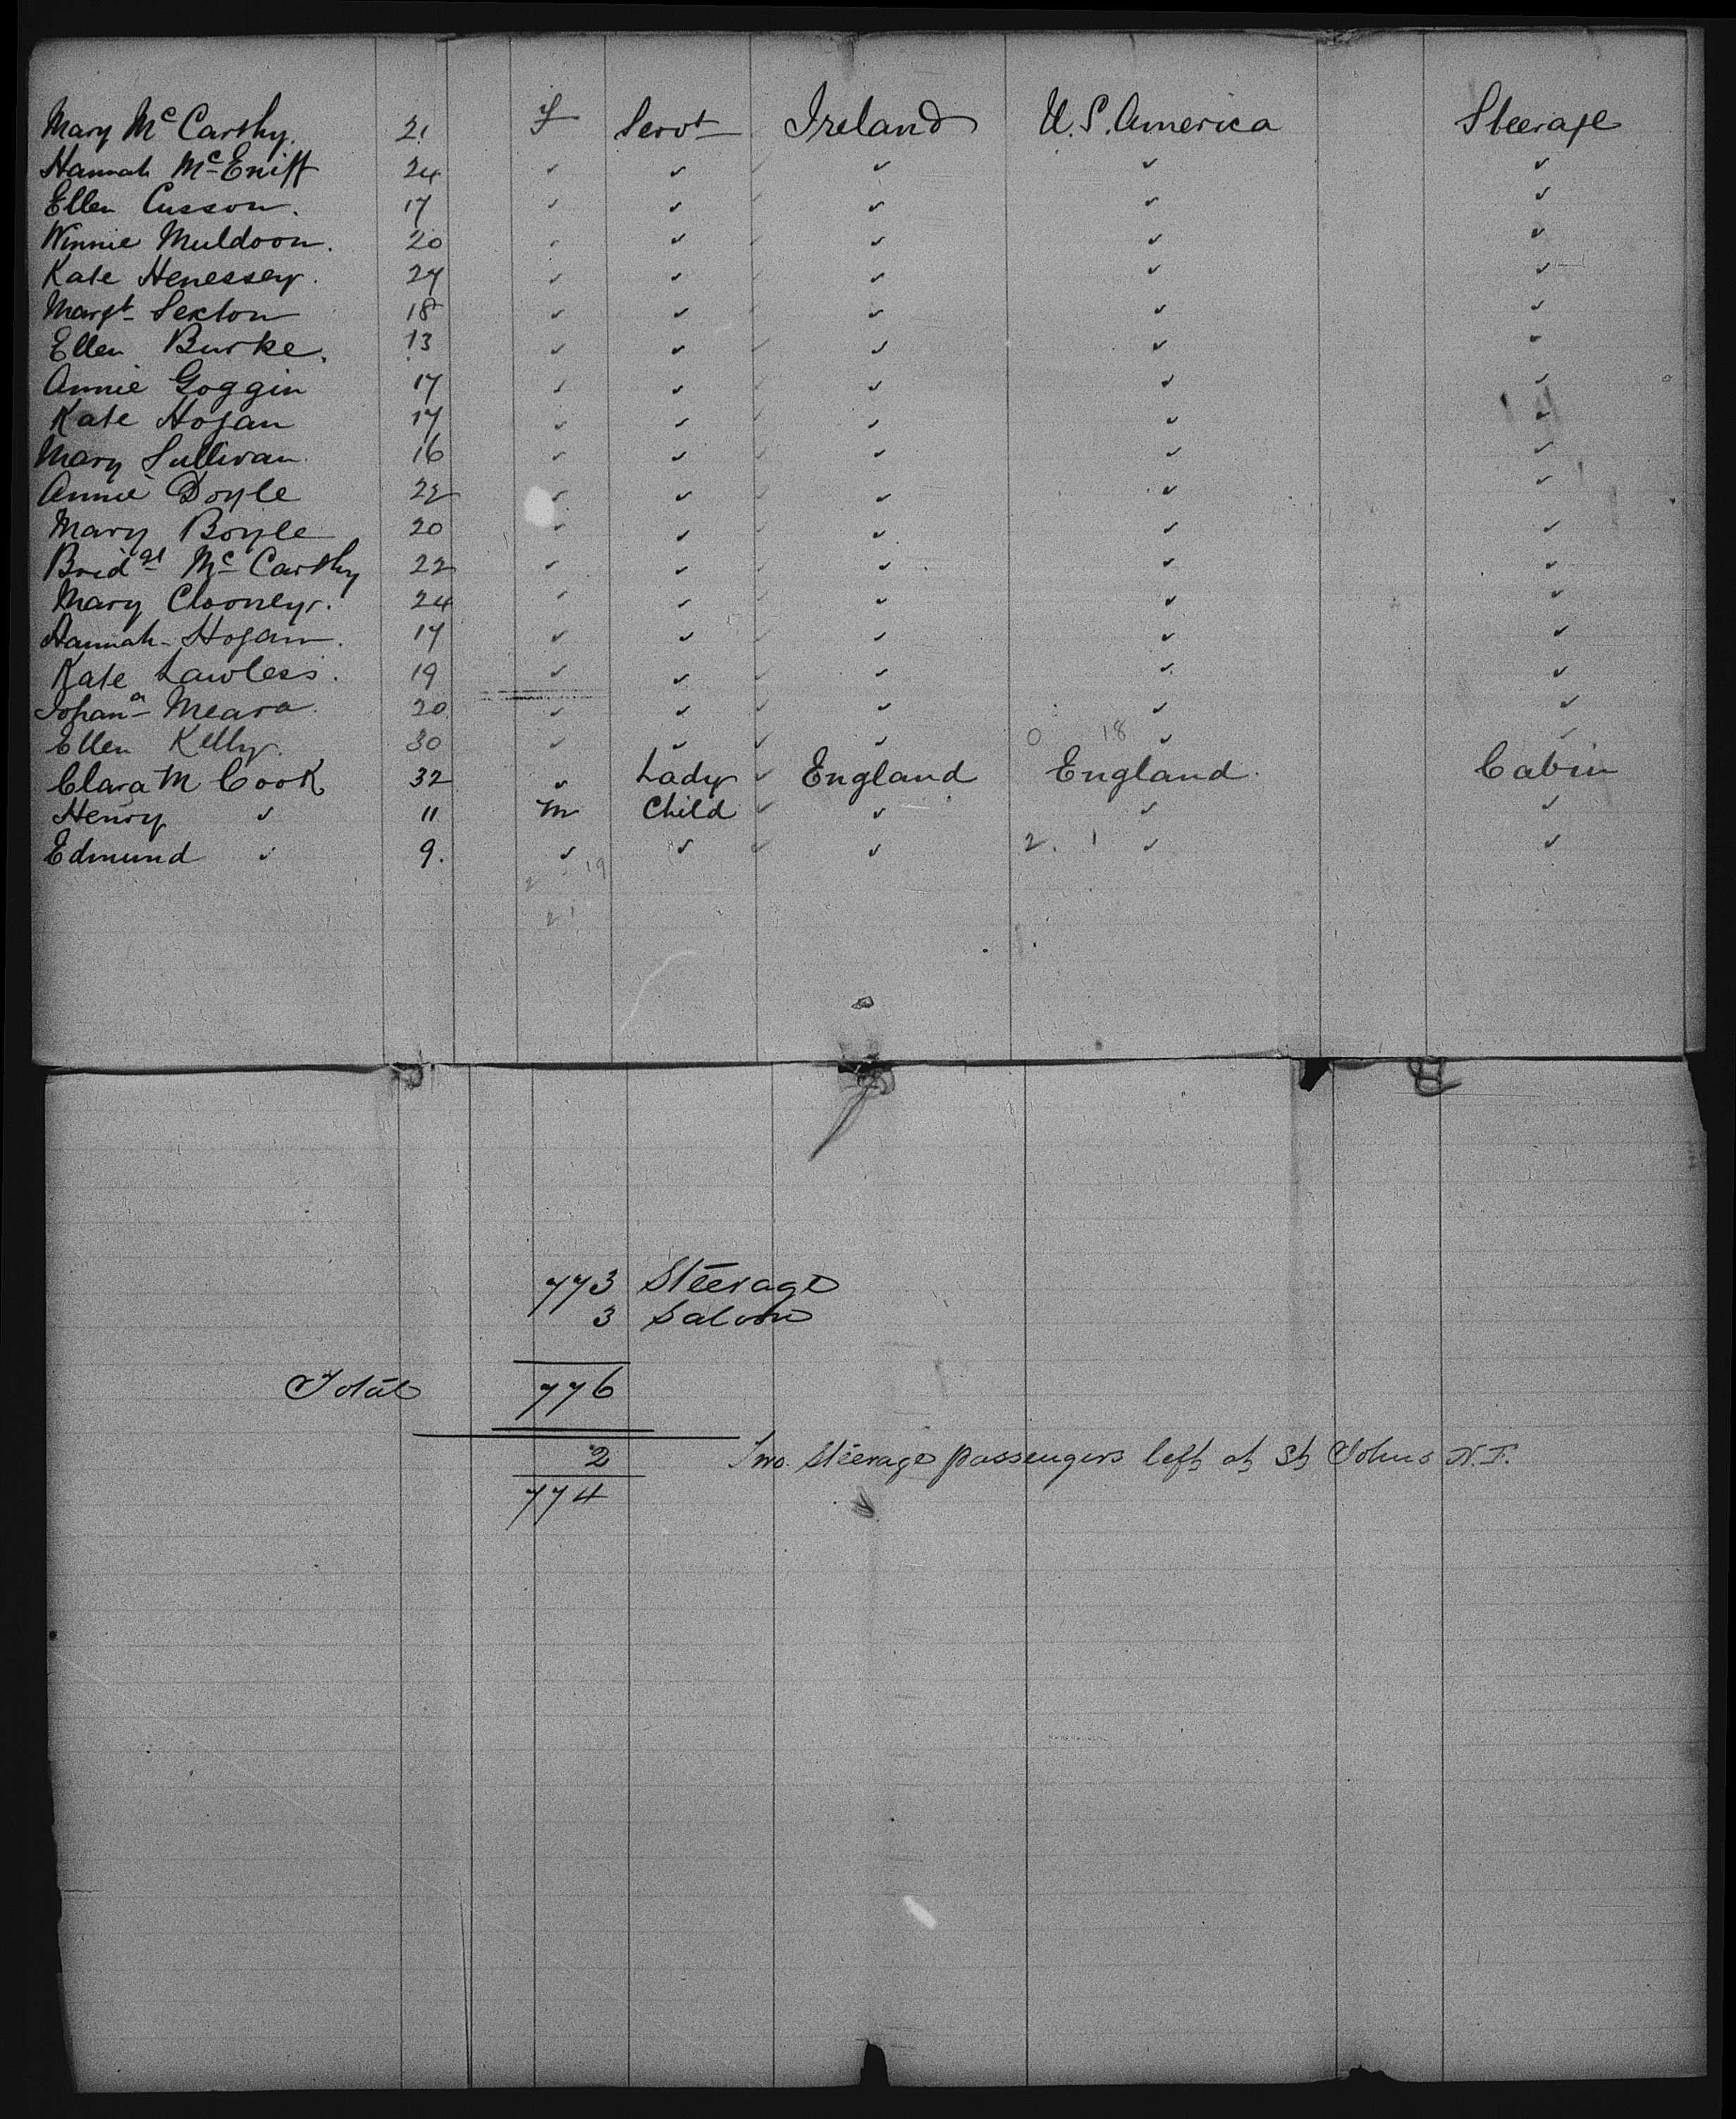 Mary McCarthy. 21 F Servt Ireland U.S. America Steerage
Hannah McEniff 24 ✓ ✓ ✓ ✓ ✓ ✓
Ellen Cusson. 17 ✓ ✓ ✓ ✓ ✓ ✓
Winnie Muldoon. 20 ✓ ✓ ✓ ✓ ✓ ✓
Kate Henessey. 24 ✓ ✓ ✓ ✓ ✓ ✓
Margt Sexton 18 ✓ ✓ ✓ ✓ ✓ ✓
Ellen Burke. 13 ✓ ✓ ✓ ✓ ✓ ✓
Annie Goggin 17 ✓ ✓ ✓ ✓ ✓ ✓
Kate Hogan 17 ✓ ✓ ✓ ✓ ✓ ✓
Mary Sullivan 16 ✓ ✓ ✓ ✓ ✓ ✓
Annie Doyle 22 ✓ ✓ ✓ ✓ ✓ ✓
Mary Boyle 20 ✓ ✓ ✓ ✓ ✓ ✓
Bridgt McCarthy 22 ✓ ✓ ✓ ✓ ✓ ✓
Mary Clooney. 24 ✓ ✓ ✓ ✓ ✓ ✓
Hannah Hogan. 17 ✓ ✓ ✓ ✓ ✓ ✓
Kate Lawless. 19 ✓ ✓ ✓ ✓ ✓ ✓
Johana Meara 20 ✓ ✓ ✓ ✓ ✓ ✓
Ellen Kelly. 30 ✓ ✓ ✓ ✓ 0 18 ✓ ✓
Clara M Cook 32 ✓ Lady ✓ England England. Cabin
Henry ✓ 11 M Child ✓ ✓ ✓ ✓
Edmund ✓ 9. ✓ ✓ ✓ ✓ 2. 1 ✓ ✓
2 19
21
773 Steerage
3 Saloon
Total 776
2 Two Steerage passengers left at St Johns N.F.
774